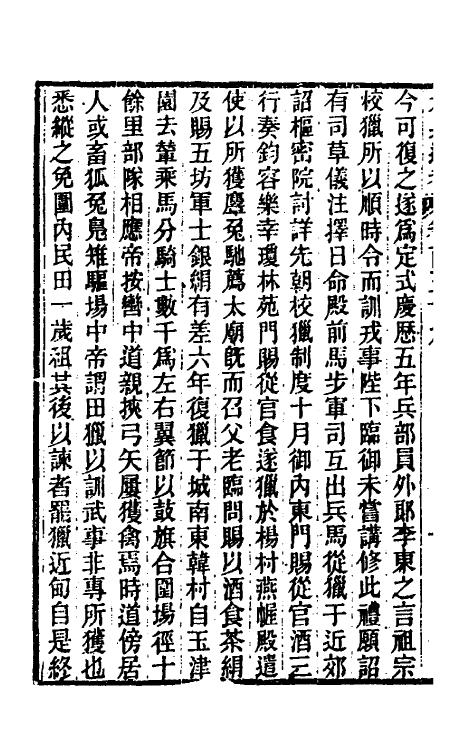 今可復之遂爲定式慶歷五年兵部員外郎李東之言祖宗
校獵所以順時令而訓戎事陛下臨御未嘗講修此禮願詔
有司草儀注擇日命殿前馬步軍司互出兵馬從獵于近郊
詔樞密院討詳先朝校獵制度十月御內東門賜從官酒三
行奏鈞容樂幸瓊林苑門賜從官食遂獵於楊村燕幄殿遣
使以所獲麞兔馳薦太廟旣而召父老臨問賜以酒食茶絹
及賜五坊軍士銀絹有差六年復獵于城南東韓村自玉津
園去輦乘馬分騎士數千爲左右翼節以鼓旗合圍場徑十
餘里部隊相應帝按轡中道親挾弓矢屢獲禽焉時道傍居
人或畜狐兔鳧雉驅場中帝謂田獵以訓武事非專所獲也
悉縱之免圍內民田一歲租其後以諫者罷獵近甸自是終